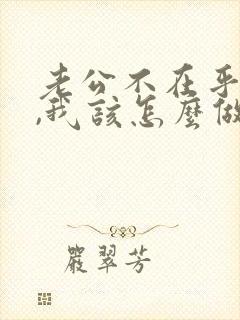 老公不在乎
,我該怎麼做
嚴翠芳